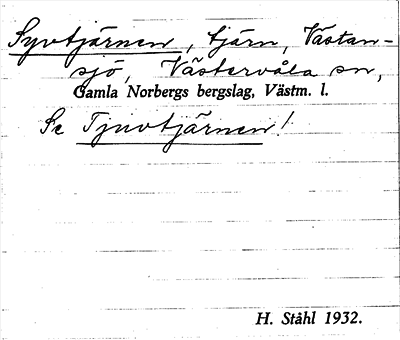 Syvtjärnen, tjärn, Västan-
sjö, Västervåla sn,
Gamla Norbergs bergslag, Västm. l.
Se Tjuvtjärnen!
H. Ståhl 1932.